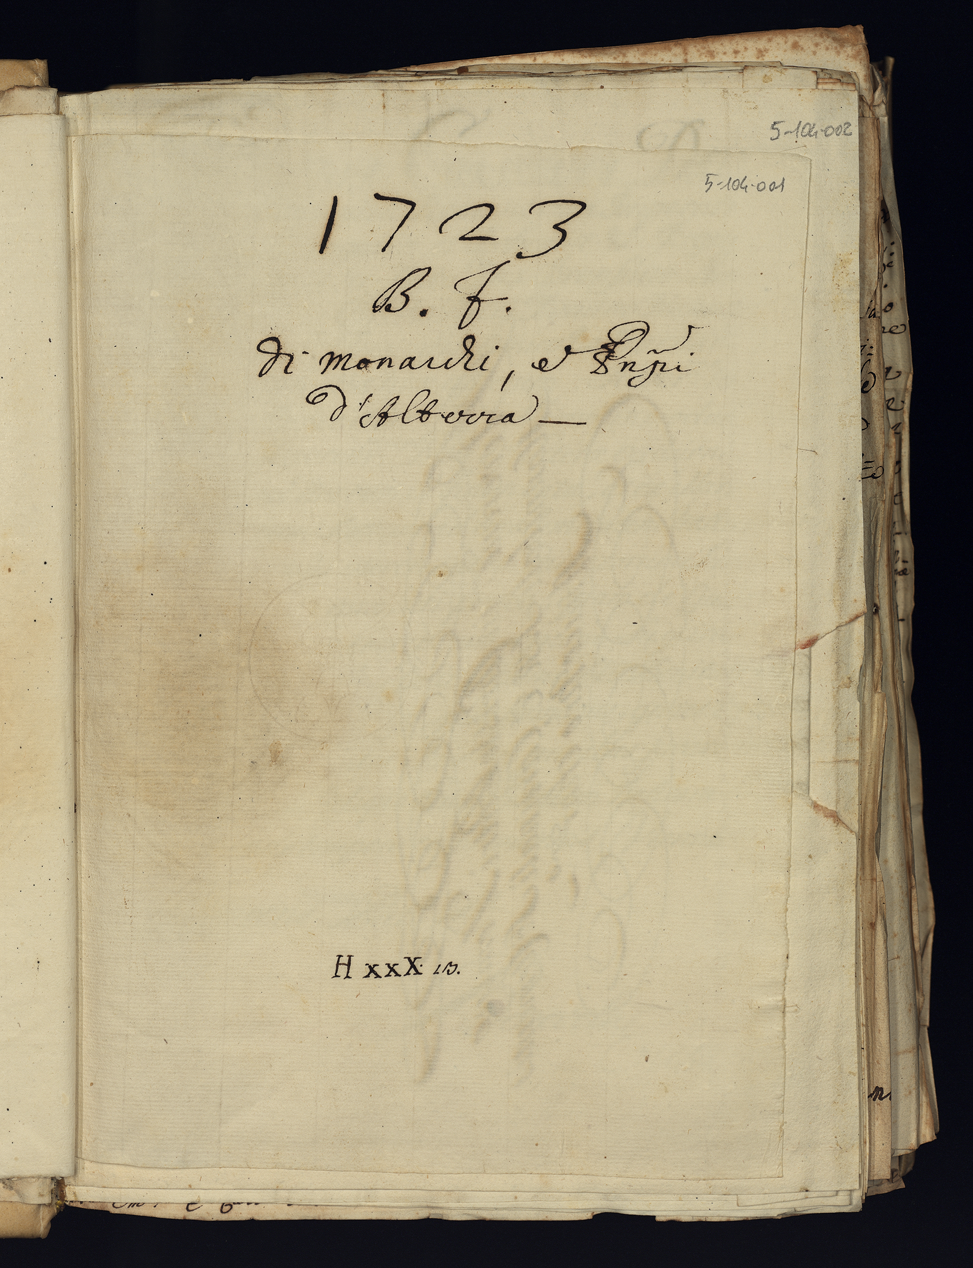 5-104-002
5-104-001
1723
B. f.
di monarchi, e Pnῖpi
d'Alterra —
H xxX. 13.